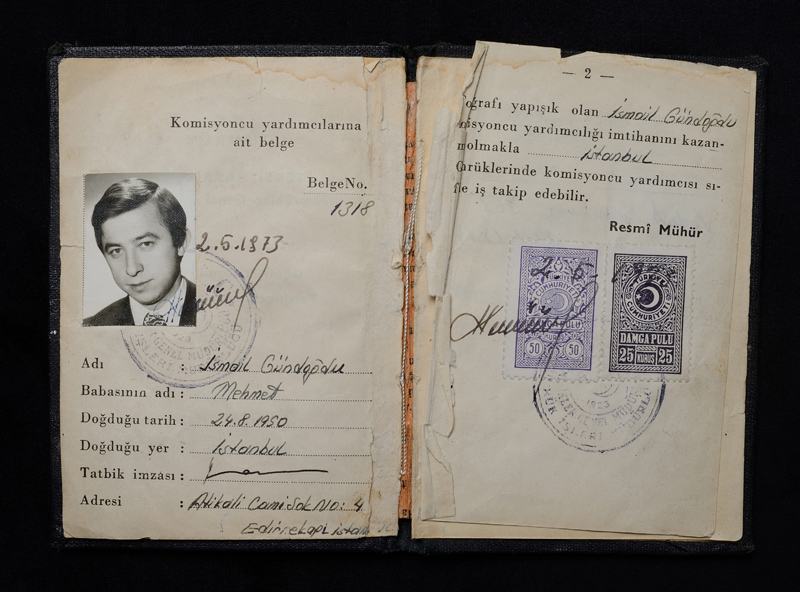 Komisyoncu yardımcılarına
ait belge
Belge No.
1318
2.6.1973
Adı : İsmail Gündoğdu
Babasının adı : Mehmet
Doğduğu tarih : 24.8.1950
Doğduğu yer : İstanbul
Tatbik imzası :
Adresi : Atikali Cami Sok No: 4
Edirnekapı İstan
— 2 —
oğrafı yapışık olan İsmail Gündoğdu
misyoncu yardımcılığı imtihanını kazan-
olmakla İstanbul
rüklerinde komisyoncu yardımcısı sı-
le iş takip edebilir.
Resmî Mühür
2.6.
TÜRKİYE
CUMHURİYETİ
CUMHURİYETİ
PULU
DAMGA PULU
50 50
25 KURUŞ 25
1923